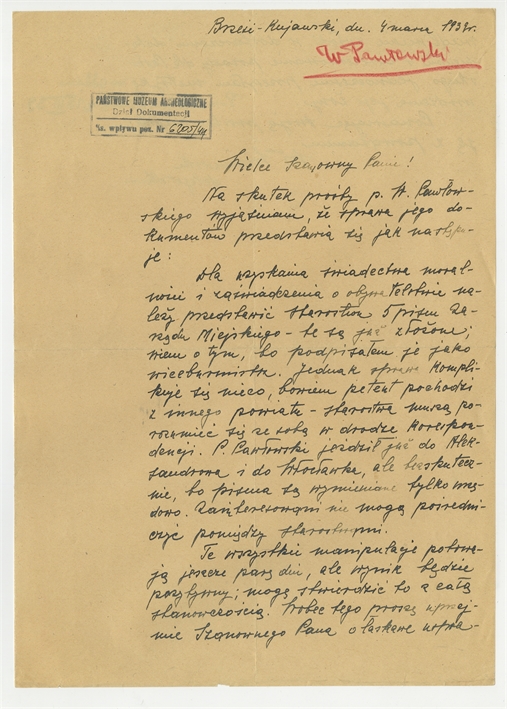 Brześć-Kujawski, dn. 4 marca 1939r.
W Pawłowski
PAŃSTWOWE MUZEUM ARCHEOLOGICZNE
Dział Dokumentacji
L. wpływu pos. Nr 6205/
Wielce Szanowny Panie!
Na skutek prośby p. W. Pawłow-
skiego wyjaśniam, że sprawa jego do-
kumentów przedstawia się jak następu-
je:
Dla uzyskania świadectwa moral-
ności i zaświadczenia o obywatelstwie na-
leży przedstawić starostom 5 pism Za-
rządu Miejskiego - te są już złożone;
wiem o tym, bo podpisałem je jako
wiceburmistrz. Jednak sprawa kompli-
kuje się nieco, bowiem petent pochodzi
z innego powiatu - starostwa muszą po-
rozumieć się ze sobą w drodze korespon-
dencji. P. Pawłowski jeździł już do Alek-
sandrowa i do Włocławka, ale bezskutecz-
nie, bo pisma są wymieniane tylko urzę-
dowo. Zainteresowani nie mogą pośredni-
czyć pomiędzy starostwami.
Te wszystkie manipulacje potrwa-
ją jeszcze parę dni, ale wynik będzie
pozytywny; mogą stwierdzić to z całą
stanowczością. Wobec tego proszę uprzej-
mie Szanownego Pana o łaskawe wstra-